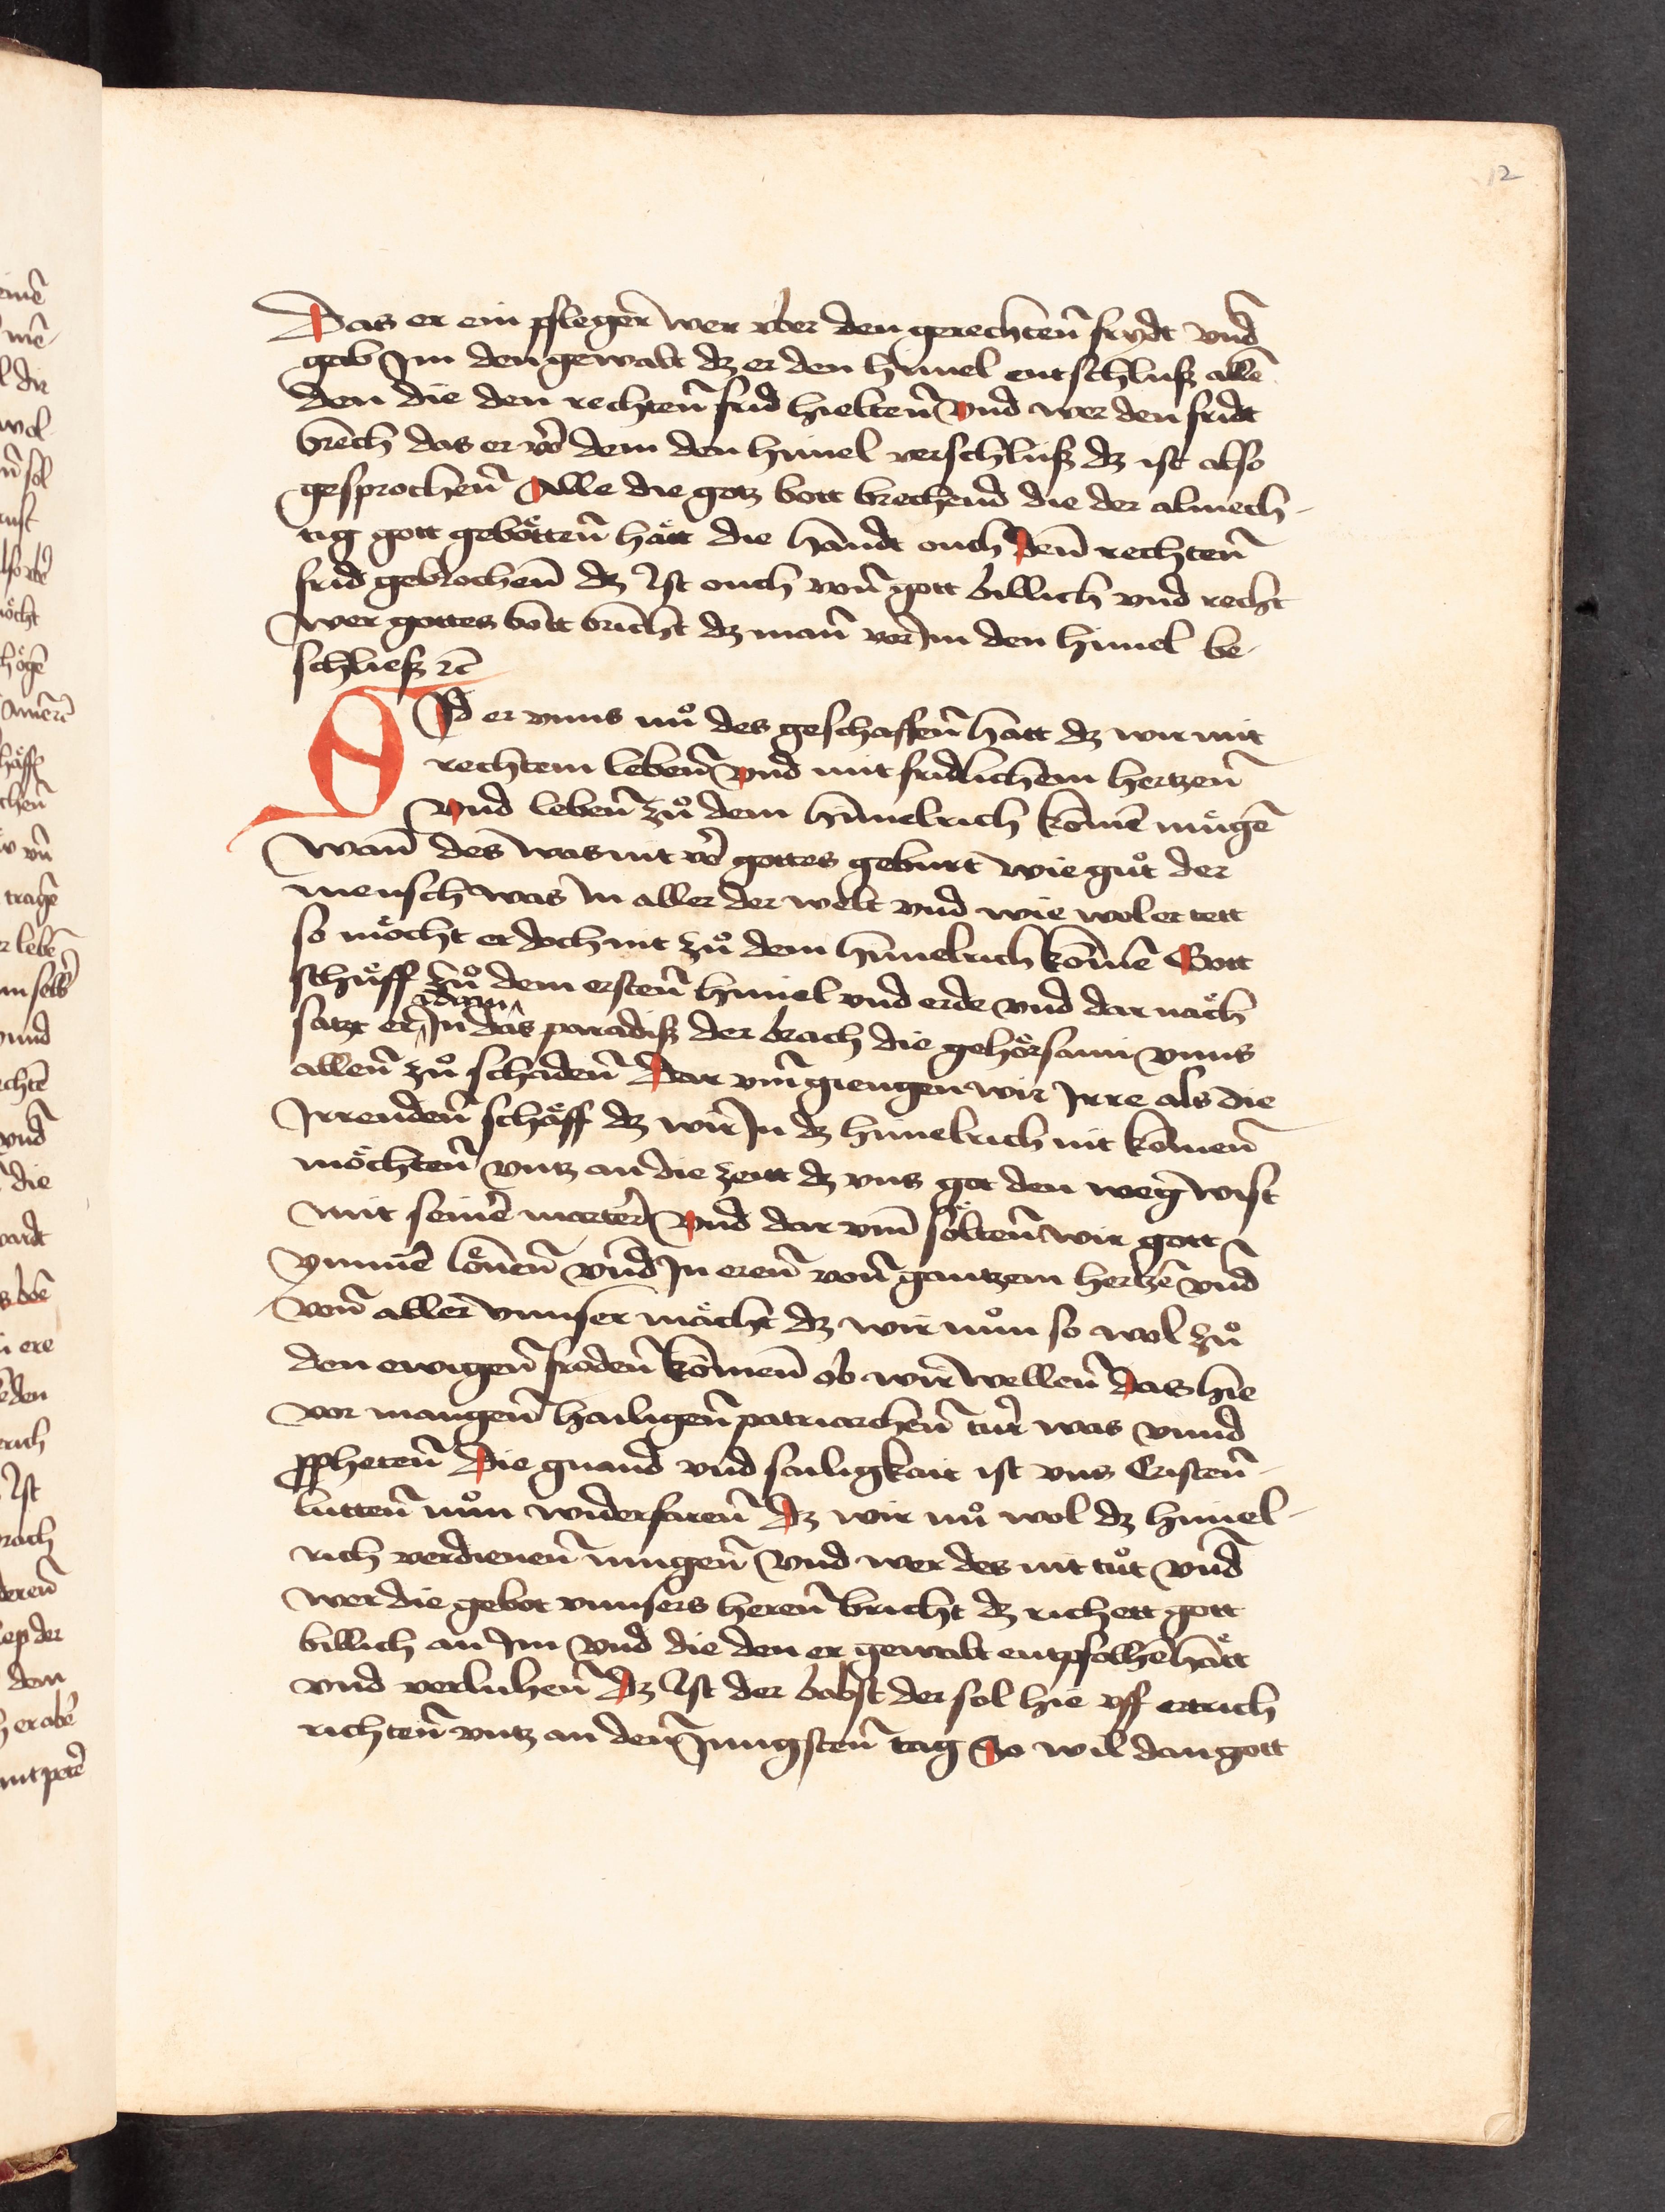 12
Das er ein pfleger wer vber den gerechtenn̄ frydt vnd̄
gab Im den gewalt dz er den himel entschluß allē
den die den rechtenn̄ frid hieltenn̄ vnd wer den fridt
brech das er vor dem den himel verschluß dz ist also
gesprochenn̄ Alle die gotz bott brechend die der almech-
tig gott geböttenn̄ hätt die handt ouch denn̄ rechtenn̄
frid gebrochenn̄ dz Ist ouch vonn̄ gott billich vnd recht
wer gottes bott bricht dz mann̄ vor Im den himel be-
schließ ꝛc̄
Sid er vnns nů des geschaffenn̄ hatt dz wir mit
rechtem lebenn̄ vnd mit fridlichem hertzenn̄
vnd lebenn̄ zů dem himelrich komē mügē
wann̄ des was nit vor gottes geburt wie gůt der
mensch was In aller der welt vnd wie wol er tett
so möcht er doch nit zů dem himelrich komē Gott
schüff zů dem erstenn̄ himel vnd erde vnd dar näch
satzt er adam In das paradiß der brach die gehörsami vnns
allenn̄ zů schadenn̄ Dar vm̄ giengen wir Irre als die
Irrendenn̄ schäff dz wir In dz himelrich nit komenn̄
möchtenn̄ vntz an die zeitt dz vns got den weg wist
mit seinē marter vnd dar vm̄ söltenn̄ wir gott
ymmē lönenn̄ vnd̄ In erenn̄ vonn̄ gantzem hertzē vnd̄
vonn̄ aller vnnser mächt dz wir nůn so wol zů
den ewigenn̄ frödenn̄ komenn̄ ob wir wellenn̄ Das hie
vor mangenn̄ hailigenn̄ patriarchenn̄ tür was vnnd
ꝓphetenn̄ Die gnaud vnd sailigkait ist vns Cristenn̄-
luttenn̄ nůn widerfarenn̄ Dz wir nů wol dz himel-
rich verdienenn̄ mugenn̄ vnd wer des nit tůt vnd̄
wer die gebot vnnsers herenn̄ bricht dz richett gott
billich an Im vnd die den er gewalt entpfolhē hätt
vnd verluhenn̄ Dz Ist der babst der sol hie vff ertrich
richtenn̄ vntz an denn̄ Jungstenn̄ tag So wil dan gott